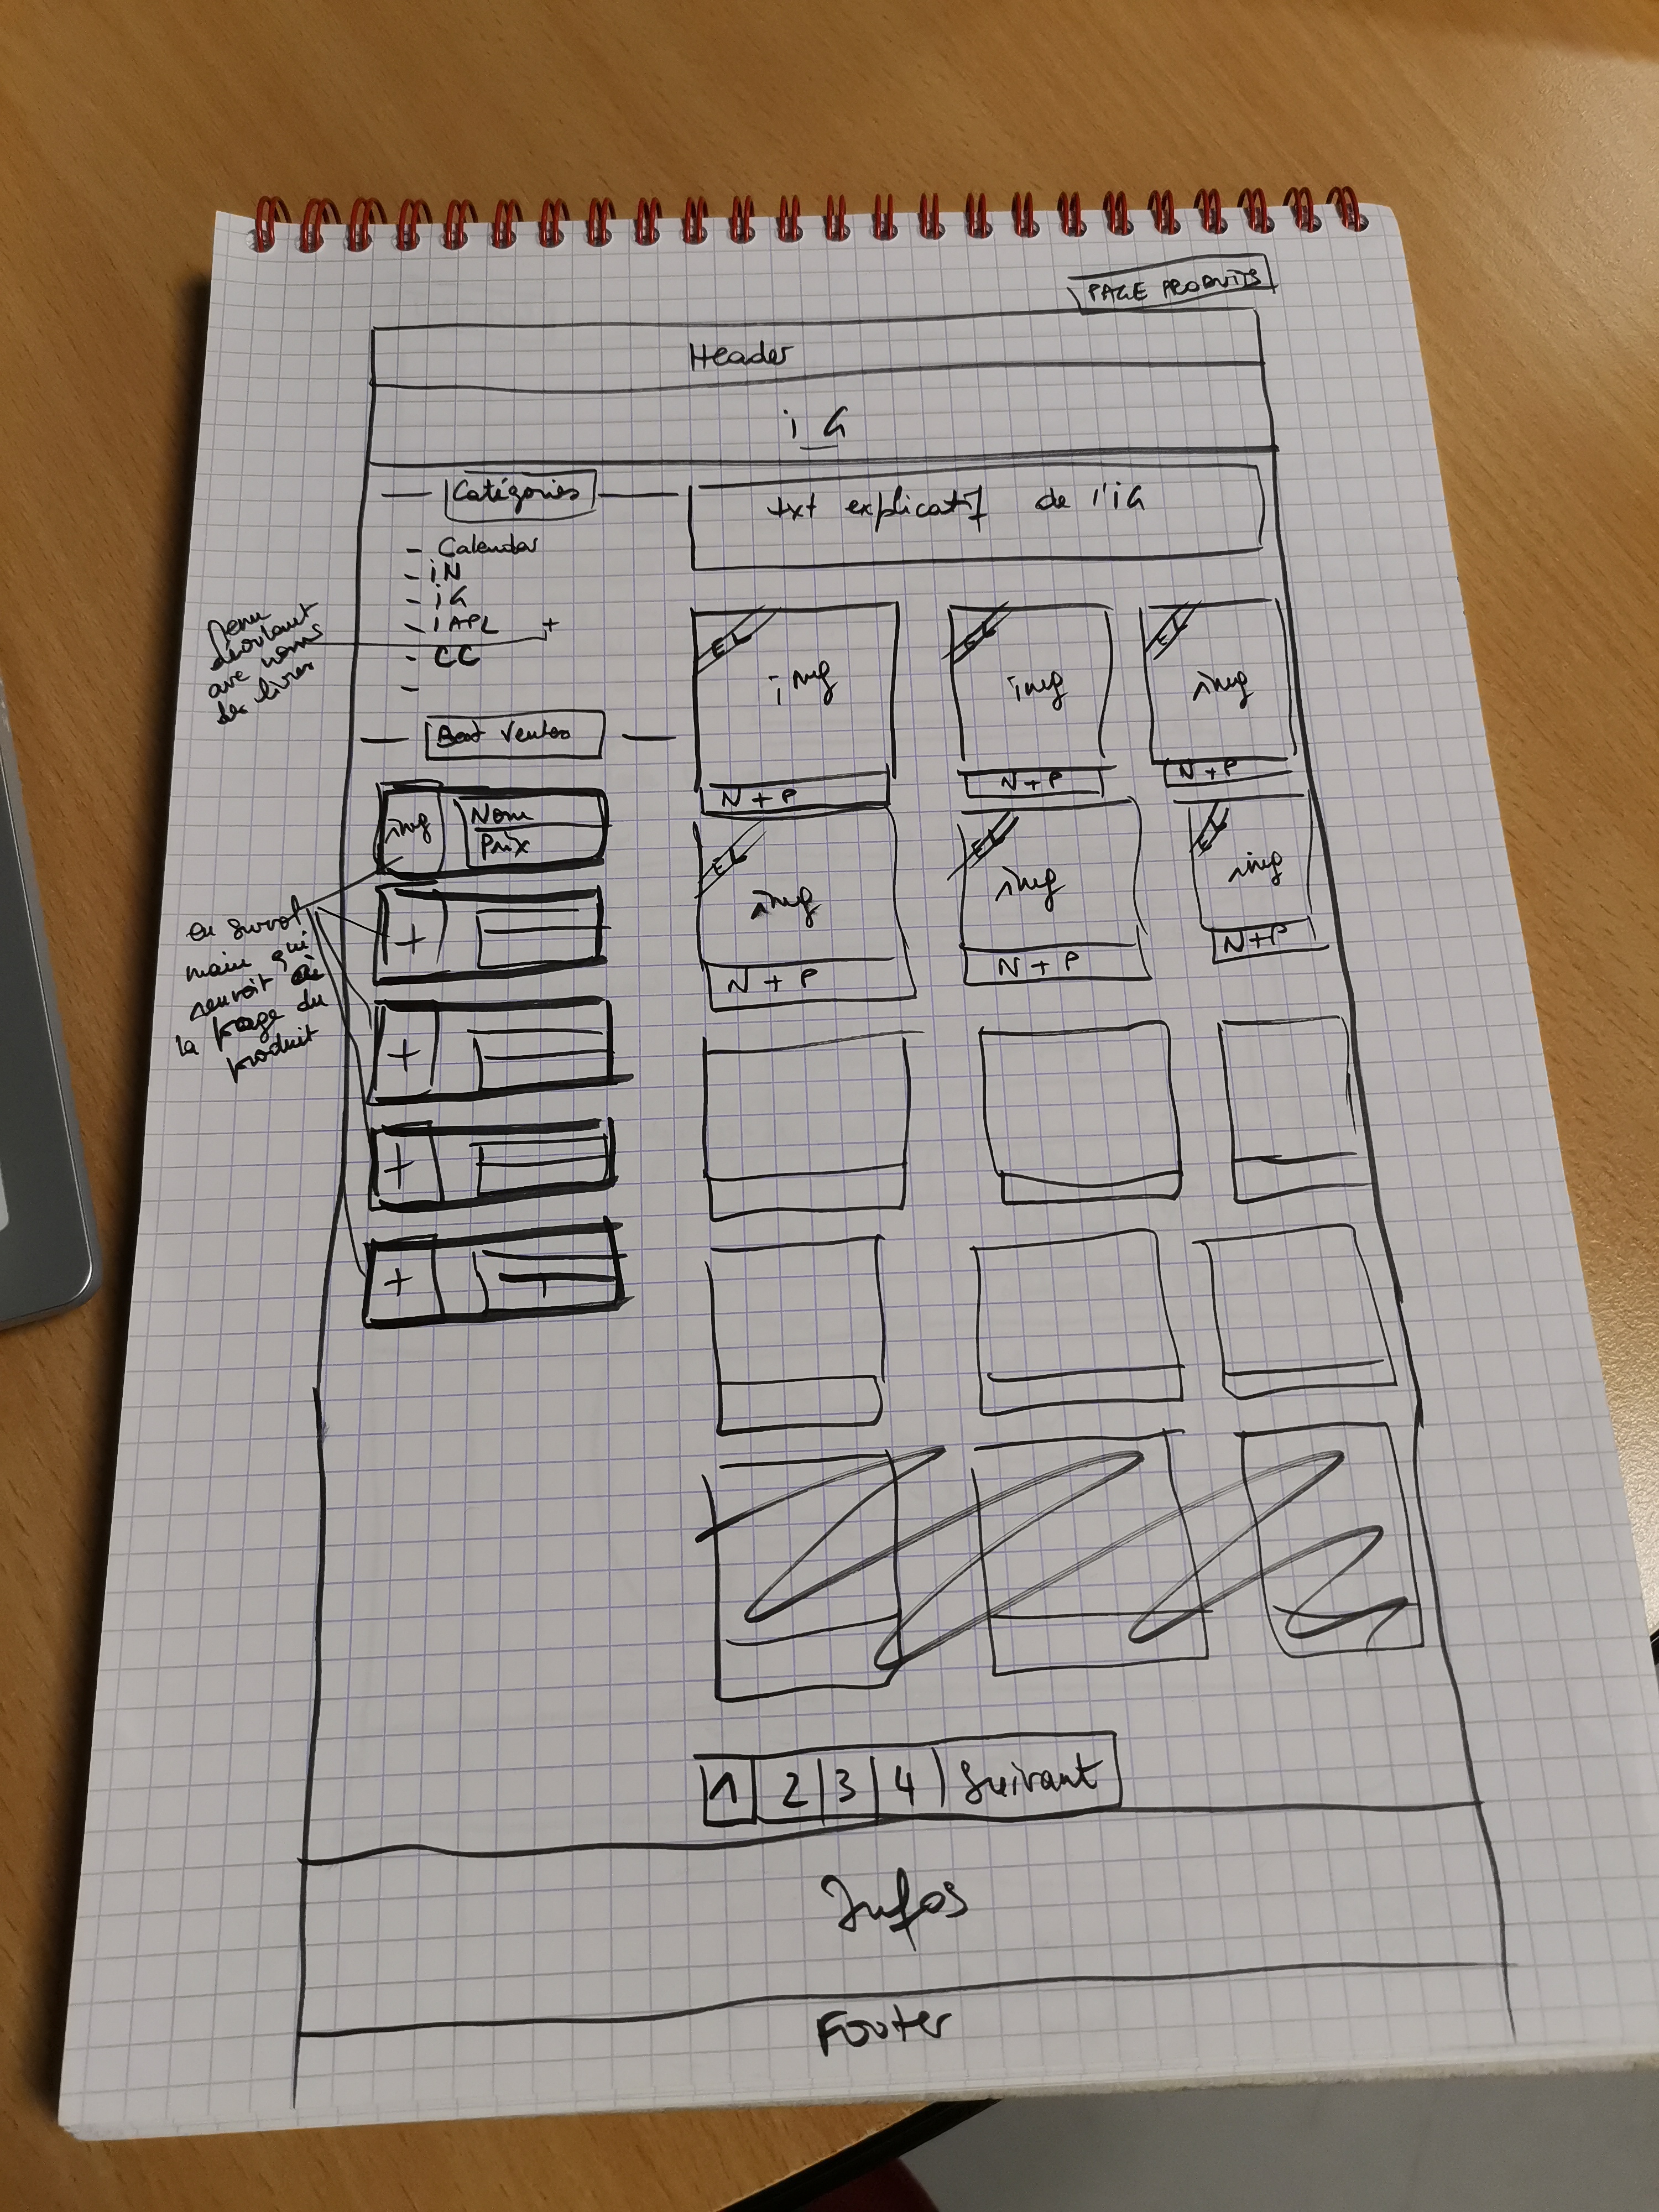 PAGE PRODUITS
Header
iG
Catégories
txt explicatif de l'iG
- Calendar
- iN
- iG
- iAPL +
- CC
-
Menu
déroulant
avec noms
des livres
Best Ventes
EL
img
N + P
EL
img
N + P
EL
img
N + P
img
Nom
Prix
+
+
+
+
en survol
main qui
renvoit
la page du
produit
EL
img
N + P
EL
img
N + P
EL
img
N+P
1 2 3 4 Suivant
Infos
Footer